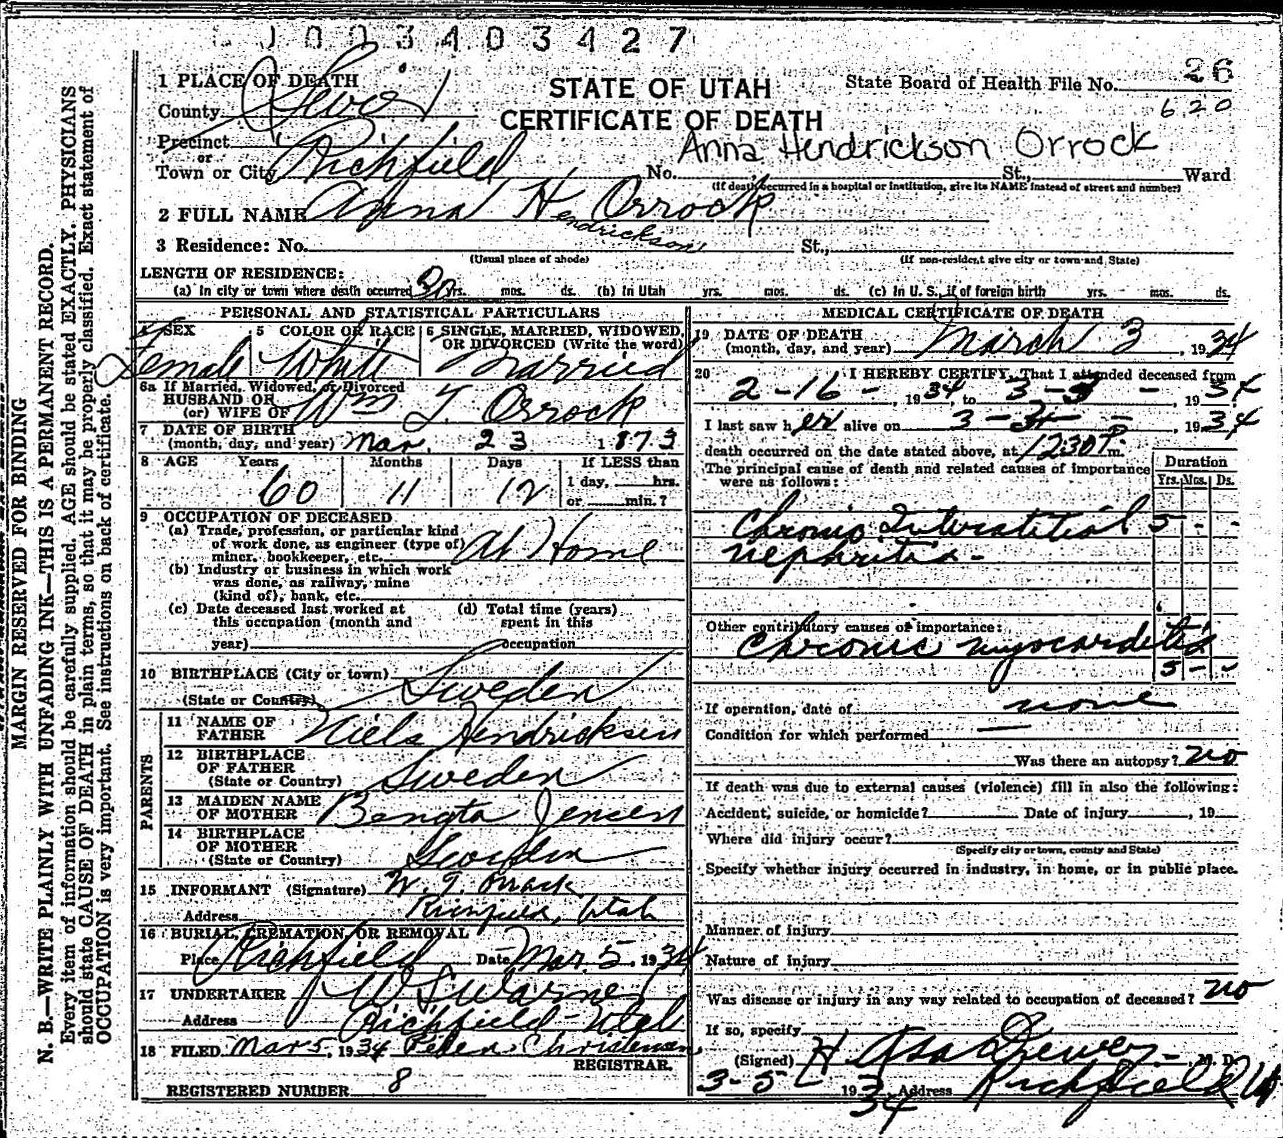 1003403427
STATE OF UTAH
CERTIFICATE OF DEATH
State Board of Health File No. 26
620
1 PLACE OF DEATH
County Sevier
Precinct
or
Town or City Richfield No. St., Ward
Anna Hendrickson Orrock
(If death occurred in a hospital or institution, give its NAME instead of street and number)
2 FULL NAME Anna H. Orrock
Hendrickson
3 Residence: No. St.,
(Usual place of abode) (If non-resident give city or town and State)
LENGTH OF RESIDENCE:
(a) in city or town where death occurred yrs. mos. ds. (b) in Utah yrs. mos. ds. (c) in U. S., if of foreign birth yrs. mos. ds.
PERSONAL AND STATISTICAL PARTICULARS
4 SEX 5 COLOR OR RACE 6 SINGLE, MARRIED, WIDOWED,
OR DIVORCED (Write the word)
Female White Married
6a If Married, Widowed, or Divorced
HUSBAND OF
(or) WIFE OF Wm T. Orrock
7 DATE OF BIRTH
(month, day, and year) Mar. 23 1873
8 AGE Years Months Days If LESS than
1 day, hrs.
or min.?
60 11 12
9 OCCUPATION OF DECEASED
(a) Trade, profession, or particular kind
of work done, as engineer (type of)
miner, bookkeeper, etc. At Home
(b) Industry or business in which work
was done, as railway, mine
(kind of), bank, etc.
(c) Date deceased last worked at
this occupation (month and
year)
(d) Total time (years)
spent in this
occupation
10 BIRTHPLACE (City or town)
(State or Country) Sweden
PARENTS
11 NAME OF
FATHER Niels Hendricksen
12 BIRTHPLACE
OF FATHER
(State or Country) Sweden
13 MAIDEN NAME
OF MOTHER Bengta Jensen
14 BIRTHPLACE
OF MOTHER
(State or Country) Sweden
15 INFORMANT (Signature) W. T. Orrock
Address Richfield, Utah
16 BURIAL, CREMATION, OR REMOVAL
Place Richfield Date Mar. 5. 1934
17 UNDERTAKER W S Warner
Address Richfield - Utah
18 FILED Mar 5, 1934 Peter Christensen
REGISTRAR.
REGISTERED NUMBER 8
MEDICAL CERTIFICATE OF DEATH
19 DATE OF DEATH
(month, day, and year) March 3, 1934
20 I HEREBY CERTIFY, That I attended deceased from
2-16-, 1934, to 3-3-, 1934
I last saw h er alive on 3-3-, 1934
death occurred on the date stated above, at 1230 P. m.
The principal cause of death and related causes of importance
were as follows:
Duration
Yrs. Mos. Ds.
Chronic Interstitial 5 - -
nephritis -
Other contributory causes of importance:
Chronic myocarditis
5 - -
If operation, date of none
Condition for which performed —
Was there an autopsy? no
If death was due to external causes (violence) fill in also the following:
Accident, suicide, or homicide? Date of injury , 19
Where did injury occur?
(Specify city or town, county and State)
Specify whether injury occurred in industry, in home, or in public place.
Manner of injury
Nature of injury
Was disease or injury in any way related to occupation of deceased? no
If so, specify
(Signed) H. Asa Dewey M. D.
3-5- 1934 Address Richfield U
MARGIN RESERVED FOR BINDING
N. B.—WRITE PLAINLY WITH UNFADING INK—THIS IS A PERMANENT RECORD.
Every item of information should be carefully supplied. AGE should be stated EXACTLY. PHYSICIANS
should state CAUSE OF DEATH in plain terms, so that it may be properly classified. Exact statement of
OCCUPATION is very important. See instructions on back of certificate.